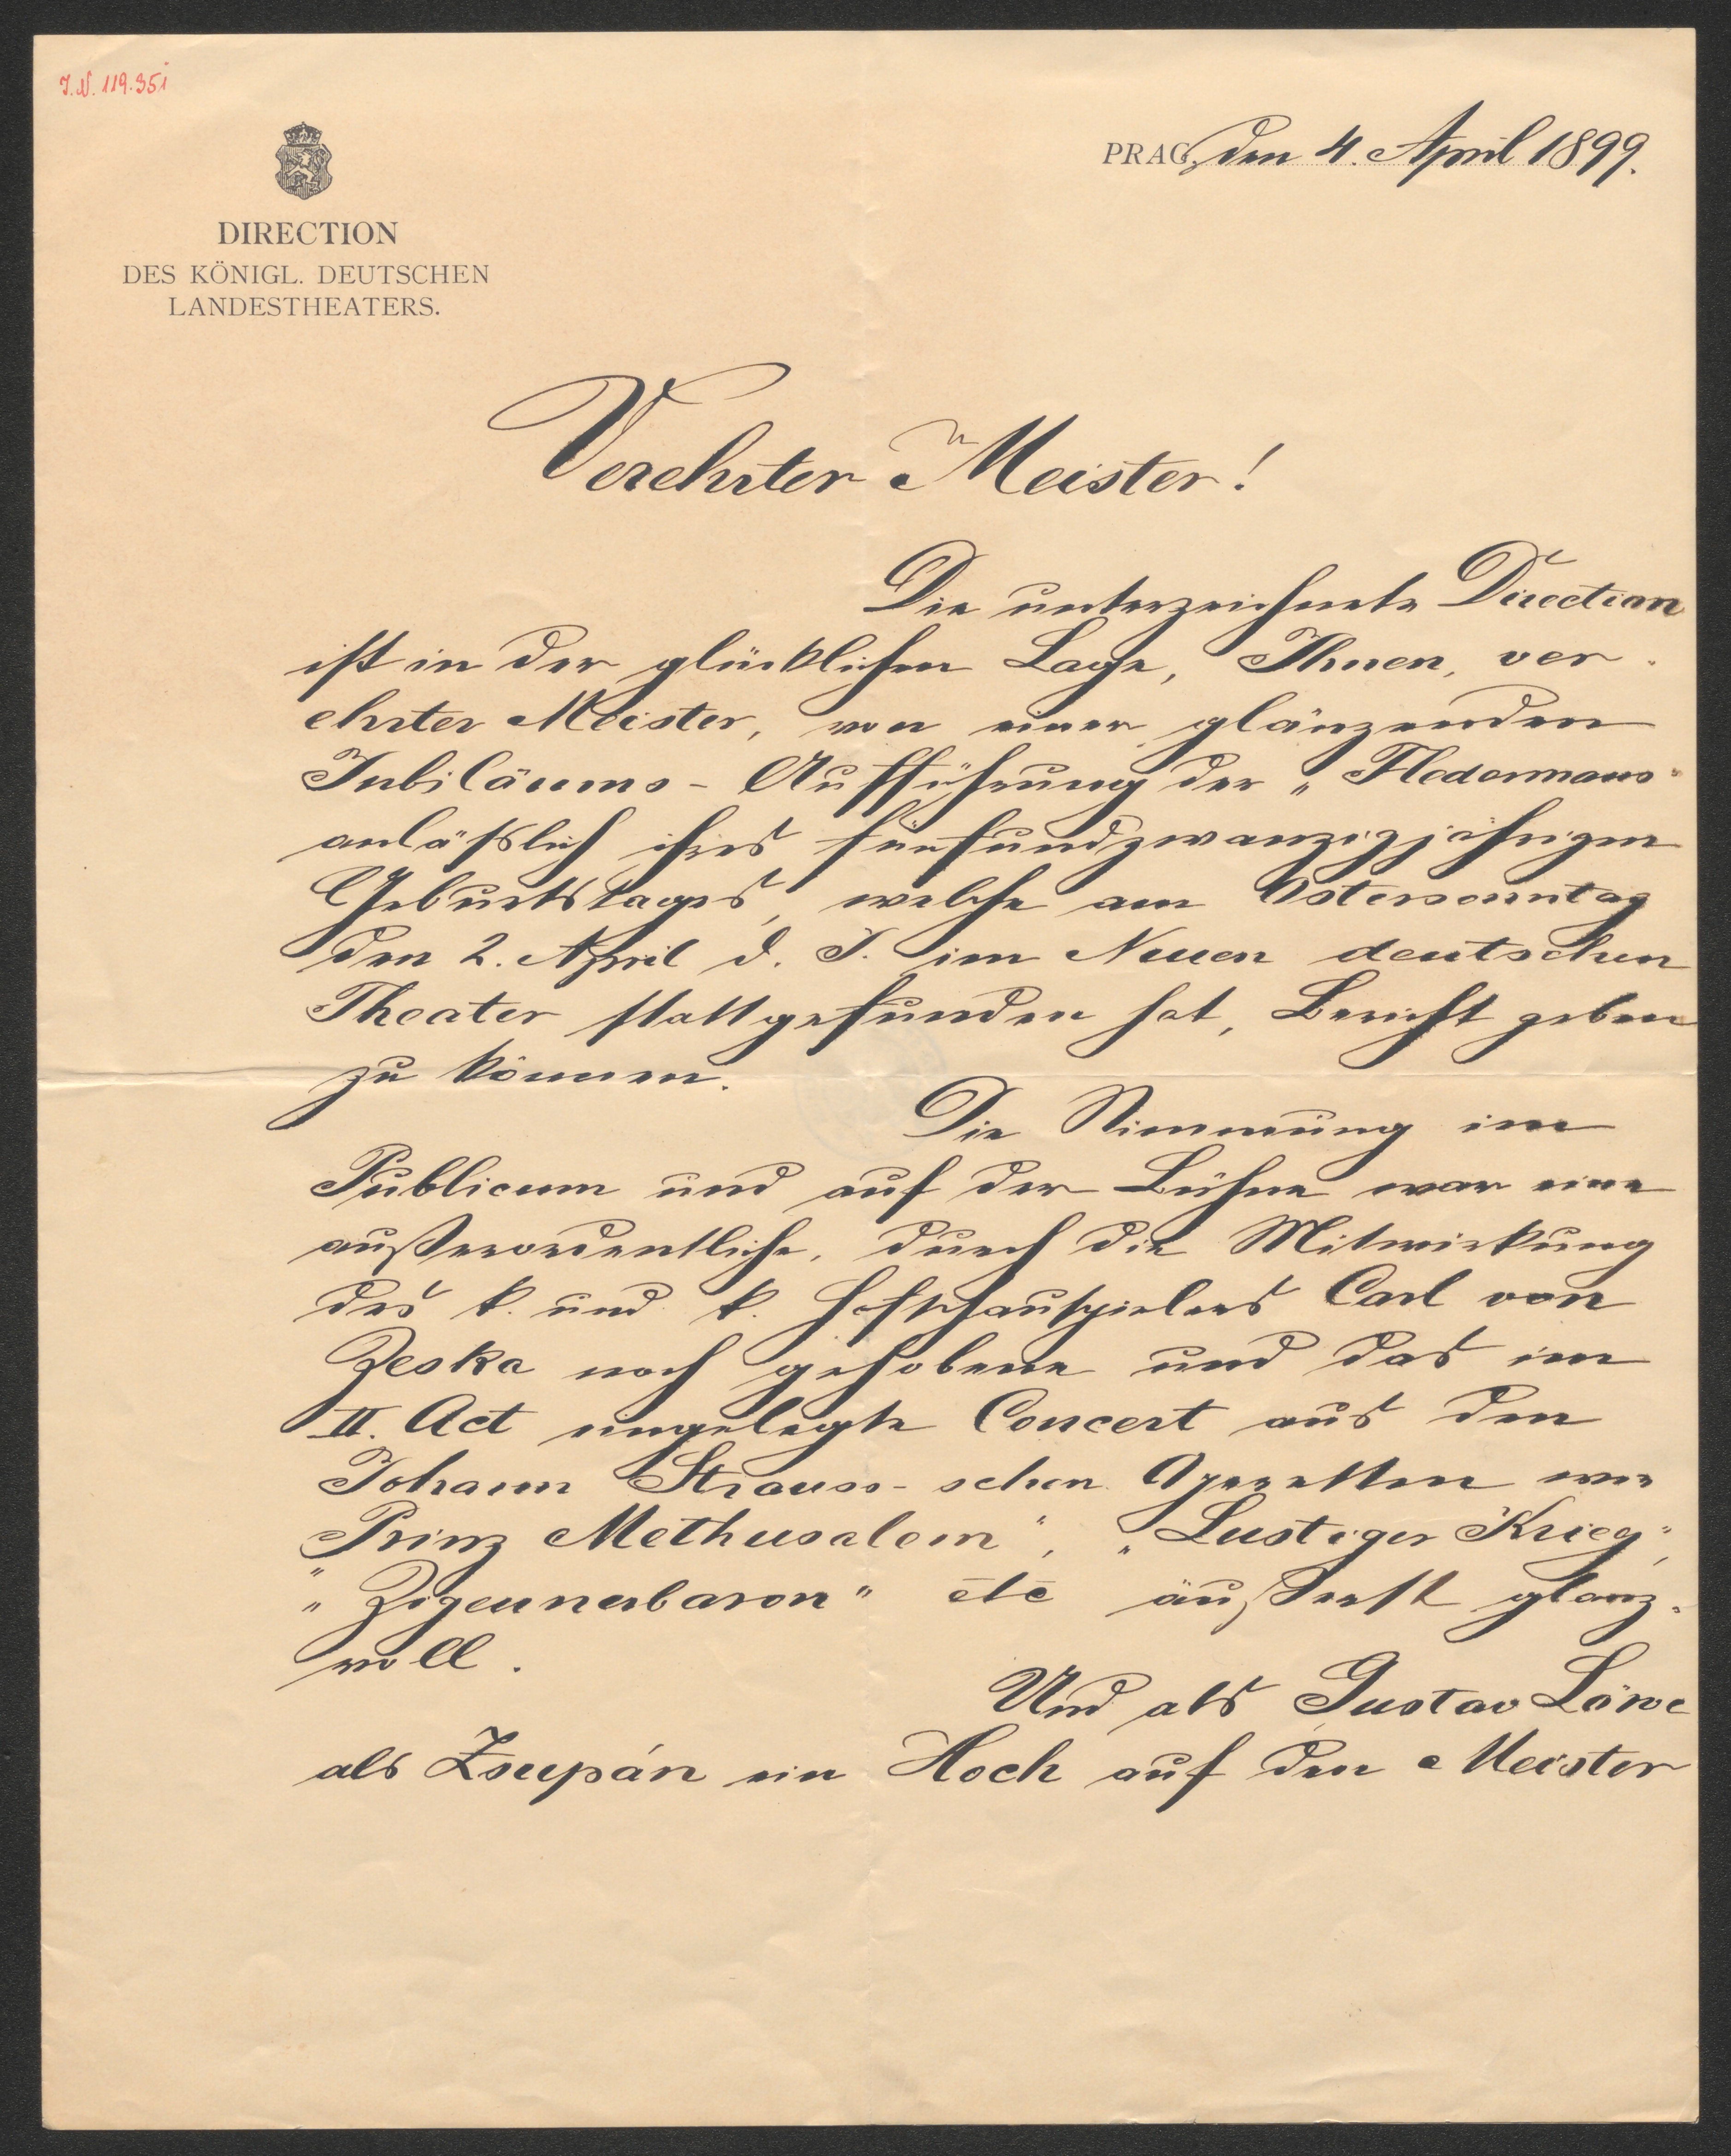 J.N. 119.351
PRAG, den 4. April 1899.
DIRECTION
DES KÖNIGL. DEUTSCHEN
LANDESTHEATERS.
Verehrter Meister!
Die unterzeichnete Direction
ist in der glücklichen Lage, Ihnen, ver-
ehrter Meister, von einer glänzenden
Jubiläums-Aufführung der „Fledermaus"
anläßlich ihres fünfundzwanzigjährigen
Geburtstages, welche am Ostersonntag
den 2. April d. J. im Neuen deutschen
Theater stattgefunden hat, Bericht geben
zu können.
Die Stimmung im
Publicum und auf der Bühne war eine
außerordentliche, durch die Mitwirkung
des k. und k. Hofschauspielers Carl von
Zeska noch gehobene und das im
II. Act eingelegte Concert aus den
Johann Strauss-schen Operetten wie
„Prinz Methusalem", „Lustiger Krieg",
„Zigeunerbaron" etc äußerst glanz-
voll.
Und als Gustav Löwe
als Zsupán ein Hoch auf den Meister